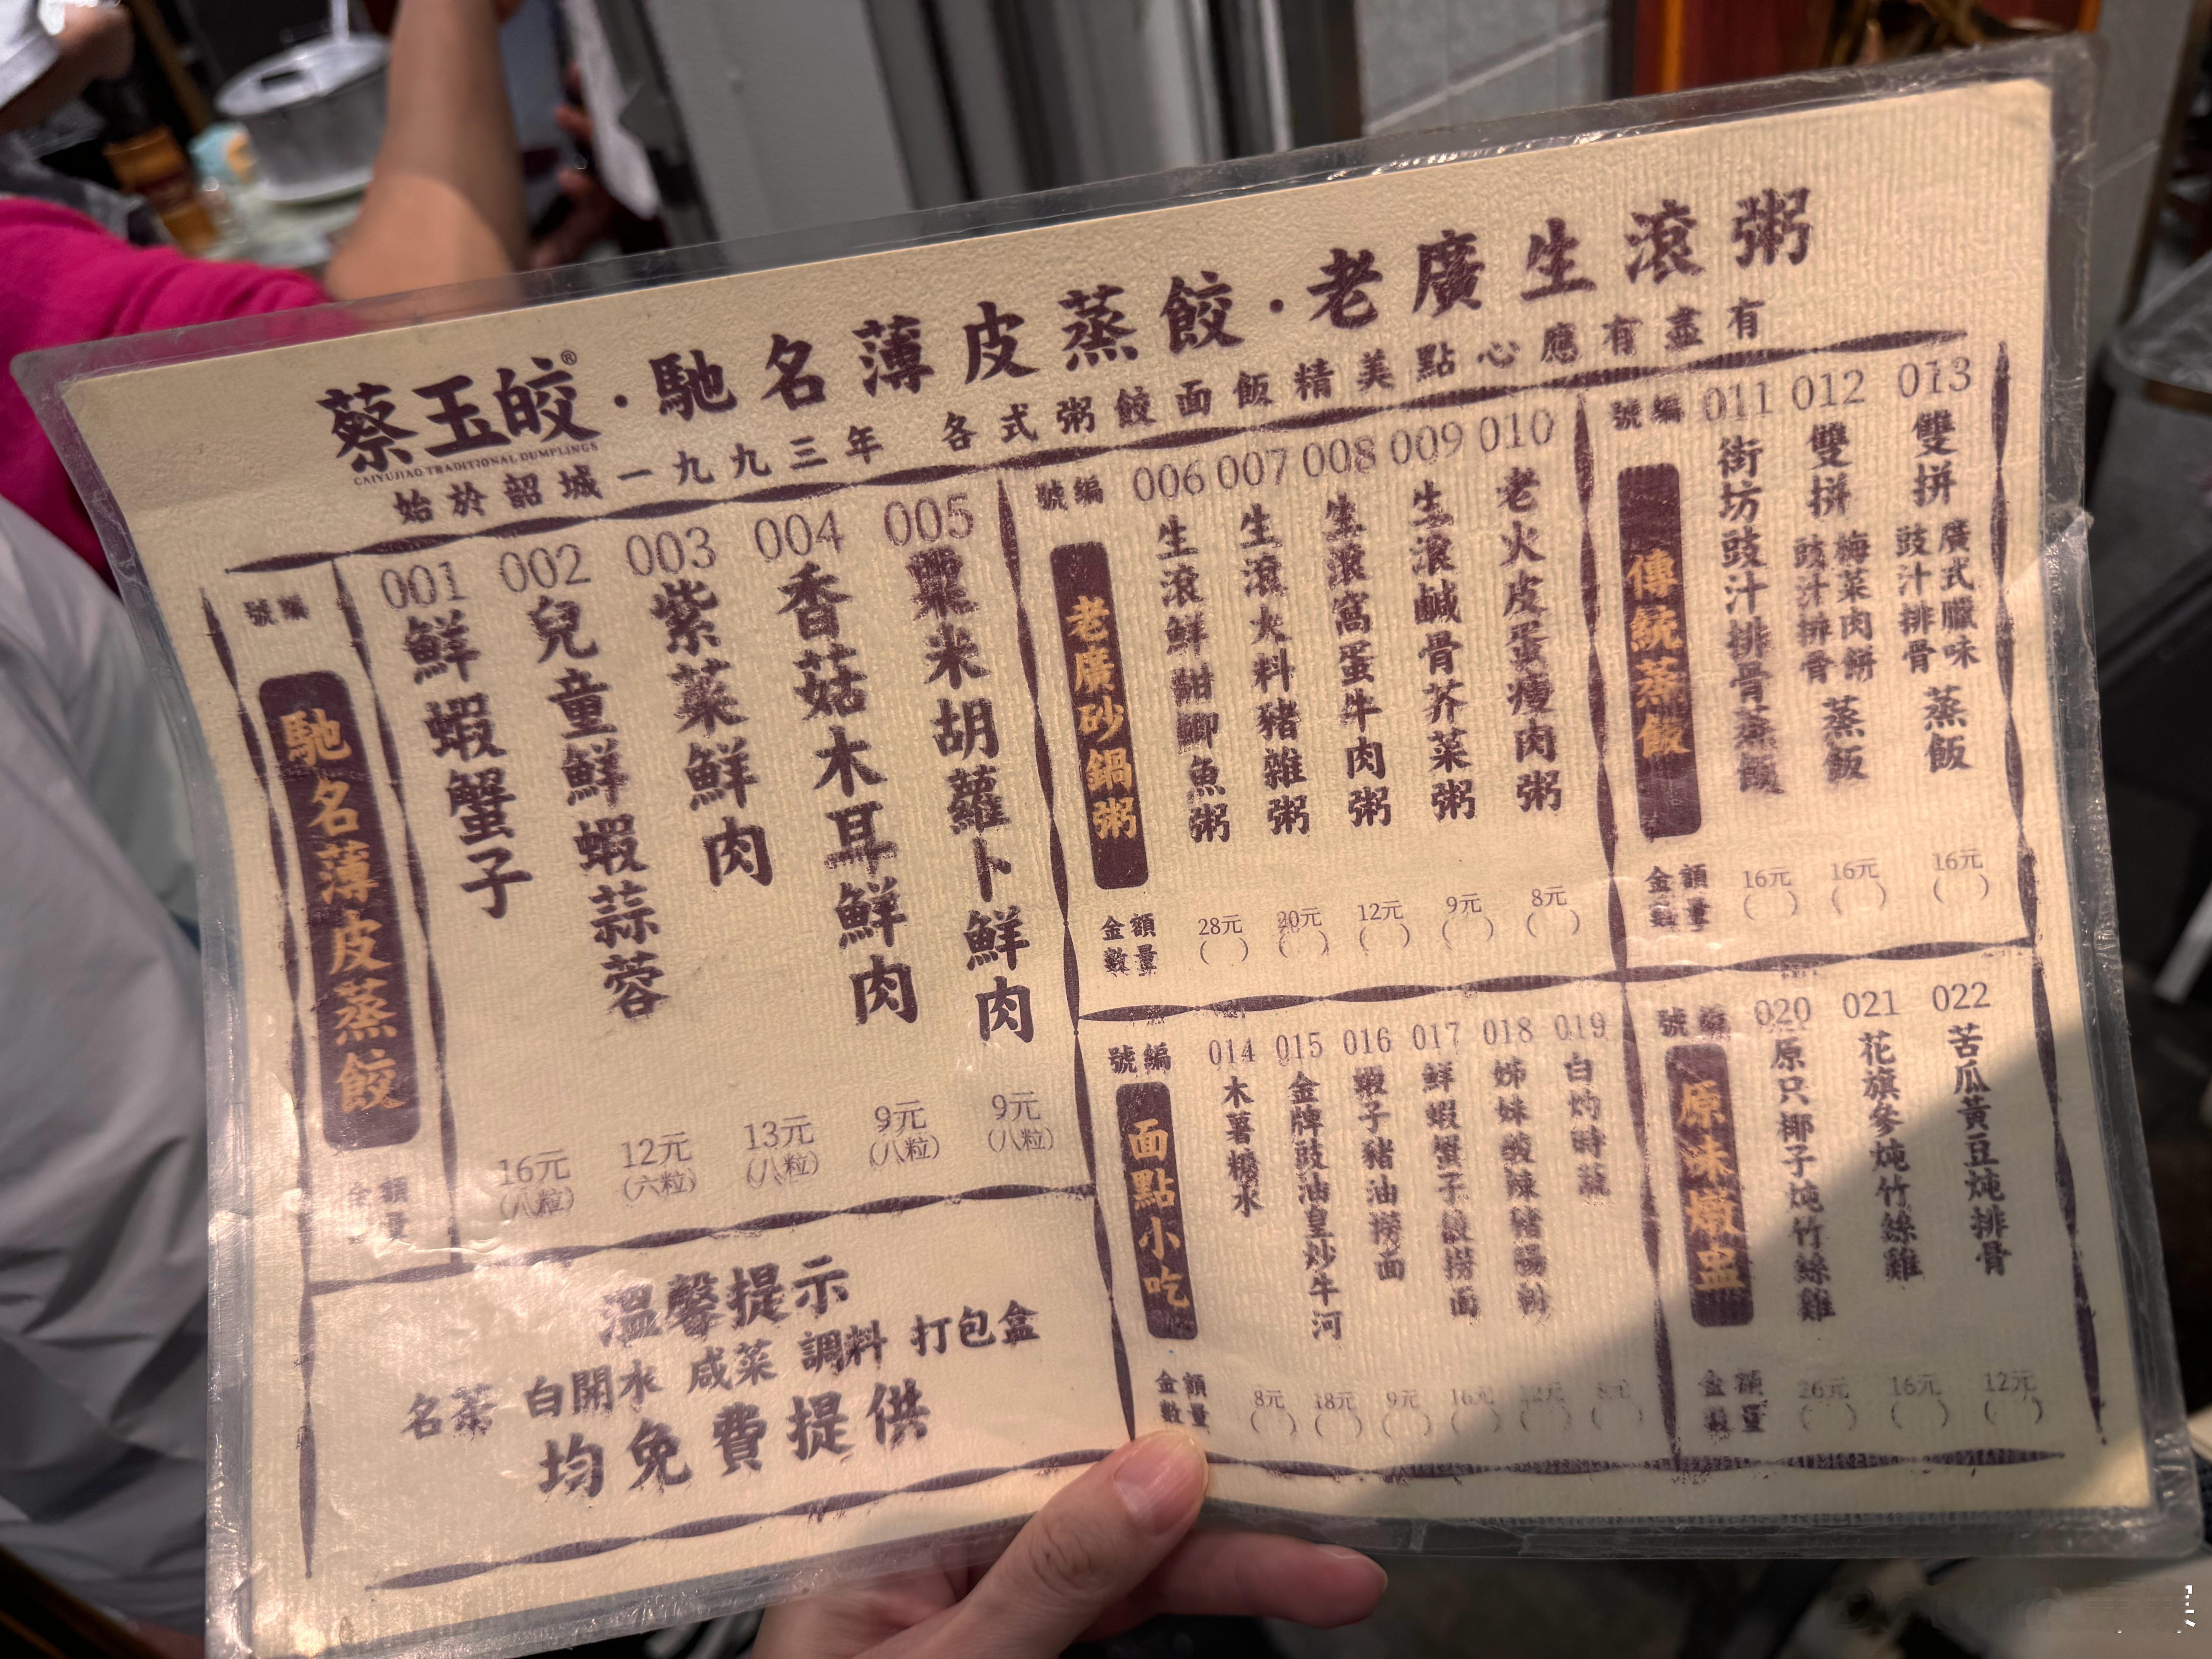 蔡玉皎®·馳名薄皮蒸餃·老廣生滾粥
CAIYUJIAO TRADITIONAL DUMPLINGS
始於韶城一九九三年 各式粥餃面飯精美點心應有盡有
號編
馳名薄皮蒸餃
001 鮮蝦蟹子 16元 (八粒)
002 兒童鮮蝦蒜蓉 12元 (六粒)
003 紫菜鮮肉 13元 (八粒)
004 香菇木耳鮮肉 9元 (八粒)
005 粟米胡蘿卜鮮肉 9元 (八粒)
金額
數量
號編
老廣砂鍋粥
006 生滾鮮甜鯽魚粥 28元 ( )
007 生滾火料豬雜粥 20元 ( )
008 生滾窩蛋牛肉粥 12元 ( )
009 生滾鹹骨芥菜粥 9元 ( )
010 老火皮蛋瘦肉粥 8元 ( )
金額
數量
號編
傳統蒸飯
011 街坊豉汁排骨蒸飯 16元 ( )
012 雙拼 梅菜肉餅 豉汁排骨 蒸飯 16元 ( )
013 雙拼 廣式臘味 豉汁排骨 蒸飯 16元 ( )
金額
數量
號編
面點小吃
014 木薯糖水 8元 ( )
015 金牌豉油皇炒牛河 18元 ( )
016 蝦子豬油撈面 9元 ( )
017 鮮蝦蟹子餃撈面 16元 ( )
018 姊妹酸辣豬腸粉 12元 ( )
019 白灼時蔬 8元 ( )
金額
數量
號編
原味燉盅
020 原只椰子炖竹絲雞 26元 ( )
021 花旗參炖竹絲雞 16元 ( )
022 苦瓜黃豆炖排骨 12元 ( )
金額
數量
溫馨提示
名茶 白開水 咸菜 調料 打包盒
均免費提供